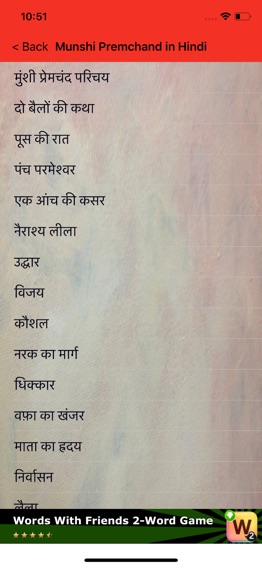 10:51
< Back Munshi Premchand in Hindi
मुंशी प्रेमचंद परिचय
दो बैलों की कथा
पूस की रात
पंच परमेश्वर
एक आंच की कसर
नैराश्य लीला
उद्धार
विजय
कौशल
नरक का मार्ग
धिक्कार
वफ़ा का खंजर
माता का ह्रदय
निर्वासन
लैला
Words With Friends 2-Word Game
W
2